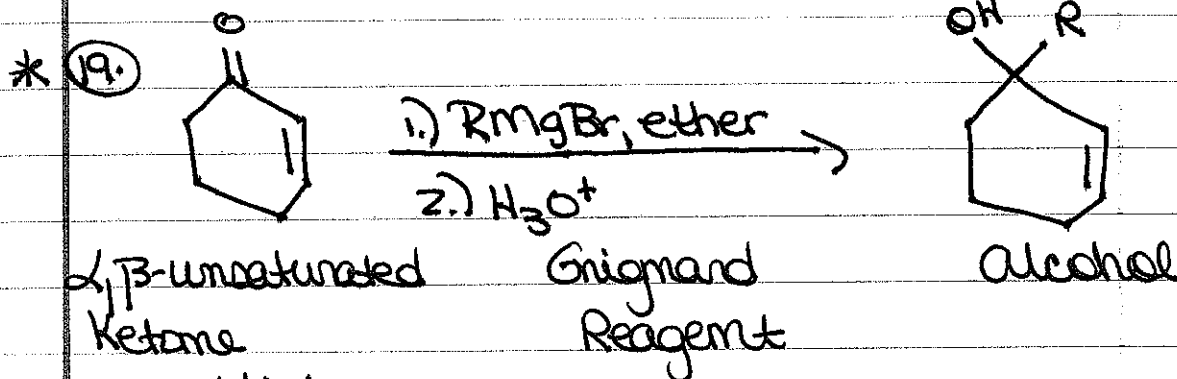 * 19.
O
OH R
1.) RMgBr, ether
2.) H3O+
α,β-unsaturated Ketone
Grignard Reagent
Alcohol